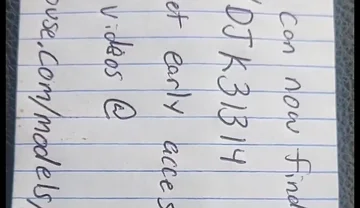 can now find
DJK31314
et early acces
videos @
ouse.com/models/